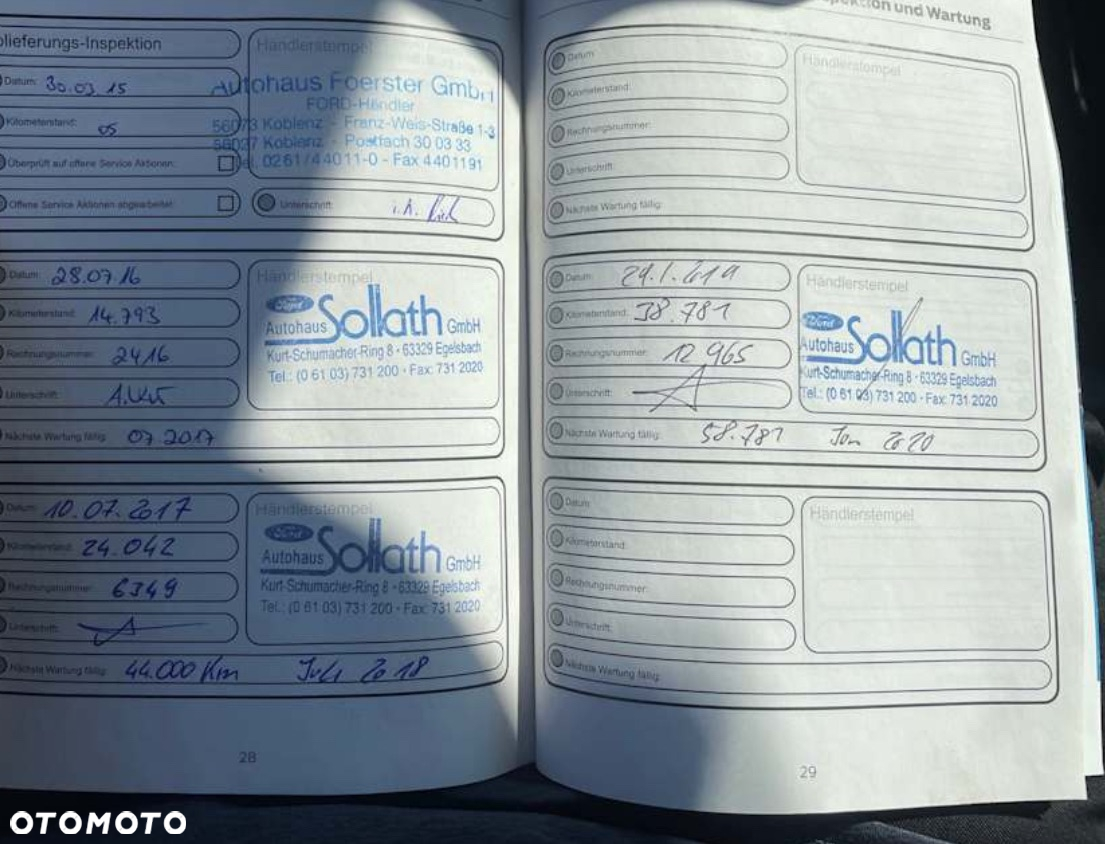 olieferungs-Inspektion
Datum: 30.03.15
Kilometerstand: 05
Überprüft auf offene Service Aktionen:
Offene Service Aktionen abgearbeitet:
Händlerstempel
Autohaus Foerster GmbH
FORD-Händler
56073 Koblenz - Franz-Weis-Straße 1-3
56027 Koblenz - Postfach 30 03 33
Tel. 0261/44011-0 - Fax 4401191
Unterschrift: i.A.
Datum: 28.07.16
Kilometerstand: 14.793
Rechnungsnummer: 2416
Unterschrift:
Nächste Wartung fällig: 07.2017
Händlerstempel
Ford
Autohaus Sollath GmbH
Kurt-Schumacher-Ring 8 · 63329 Egelsbach
Tel.: (0 61 03) 731 200 · Fax: 731 2020
Datum: 10.07.2017
Kilometerstand: 24.042
Rechnungsnummer: 6349
Unterschrift:
Nächste Wartung fällig: 44.000 Km Juli 2018
Händlerstempel
Ford
Autohaus Sollath GmbH
Kurt-Schumacher-Ring 8 · 63329 Egelsbach
Tel.: (0 61 03) 731 200 · Fax: 731 2020
28
und Wartung
Datum:
Kilometerstand:
Rechnungsnummer:
Unterschrift:
Nächste Wartung fällig:
Händlerstempel
Datum: 29.1.2019
Kilometerstand: 38.781
Rechnungsnummer: 12965
Unterschrift:
Nächste Wartung fällig: 58.781 Jan 2020
Händlerstempel
Ford
Autohaus Sollath GmbH
Kurt-Schumacher-Ring 8 · 63329 Egelsbach
Tel.: (0 61 03) 731 200 · Fax: 731 2020
Datum:
Kilometerstand:
Rechnungsnummer:
Unterschrift:
Nächste Wartung fällig:
Händlerstempel
29
OTOMOTO